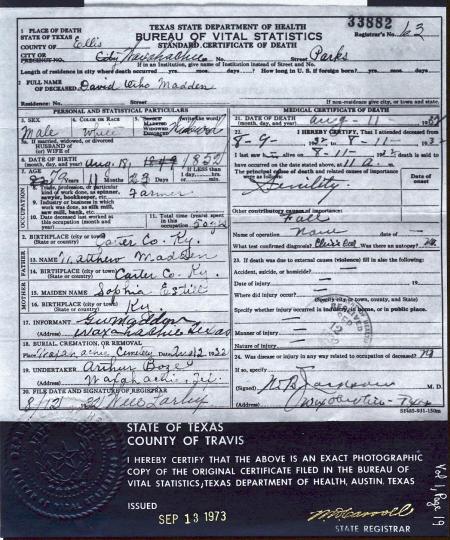 TEXAS STATE DEPARTMENT OF HEALTH
BUREAU OF VITAL STATISTICS
STANDARD CERTIFICATE OF DEATH
33882
Registrar's No. 63
1 PLACE OF DEATH
STATE OF TEXAS
COUNTY OF Ellis
City Waxahachie Street Parks
If in an Institution, give name of institution instead of Street and No.
Length of residence in city where death occurred yrs. mos. days. How long in U. S. if foreign born? yrs. mos. days
2 FULL NAME
OF DECEASED David Madden
Residence: No. Street
If non-residence give city, or town and state.
PERSONAL AND STATISTICAL PARTICULARS
3. SEX 4. COLOR OR RACE
Male White
5a. If married, widowed, or divorced
HUSBAND of
(or) WIFE of
6. DATE OF BIRTH
(month, day, and year) Aug 18, 1852
7. AGE
79 Years 11 Months 23 Days
If LESS than
1 day
OCCUPATION
8. Trade, profession, or particular
kind of work done, as spinner,
sawyer, bookkeeper, etc.
Farmer
9. Industry or business in which
work was done, as silk mill,
saw mill, bank, etc.
10. Date deceased last worked at
this occupation (month and
year)
11. Total time (years)
spent in this
occupation
2. BIRTHPLACE (city or town)
(State or country) Carter Co. Ky.
FATHER
13. NAME Matthew Madden
14. BIRTHPLACE (city or town)
(State or country) Carter Co. Ky.
MOTHER
15. MAIDEN NAME Sophia Estill
16. BIRTHPLACE (city or town)
(State or country) Ky
17. INFORMANT Madden
(Address) Waxahachie Texas
18. BURIAL, CREMATION, OR REMOVAL
Place Waxahachie Cemetery
19. UNDERTAKER Arthur Boze
(Address) Waxahachie, Tex.
20. FILE DATE AND SIGNATURE OF REGISTRAR
8/12 32 Will Farley
MEDICAL CERTIFICATE OF DEATH
21. DATE OF DEATH
(month, day, and year) Aug - 11 - 1932
22. I HEREBY CERTIFY, That I attended deceased from
8 - 9 - 32 to 8 - 11 - 1932
I last saw h alive on 8 - 11 - death is said to
have occurred on the date stated above, at 11 a m.
The principal cause of death and related causes of importance
were as follows:
Date of
onset
Senility
Other contributory causes of importance:
Fall
Name of operation None date of
What test confirmed diagnosis? Was there an autopsy?
23. If death was due to external causes (violence) fill in also the following:
Accident, suicide, or homicide?
Date of injury 19
Where did injury occur?
(Specify city or town, county, and State)
Specify whether injury occurred in industry, in home, or in public place.
Manner of injury
Nature of injury
24. Was disease or injury in any way related to occupation of deceased? No
If so, specify
(Signed) M. D.
(Address) Waxahachie - Tex
STATE OF TEXAS
COUNTY OF TRAVIS
I HEREBY CERTIFY THAT THE ABOVE IS AN EXACT PHOTOGRAPHIC
COPY OF THE ORIGINAL CERTIFICATE FILED IN THE BUREAU OF
VITAL STATISTICS, TEXAS DEPARTMENT OF HEALTH, AUSTIN, TEXAS
ISSUED
SEP 13 1973
STATE REGISTRAR
Vol 1 Page 19